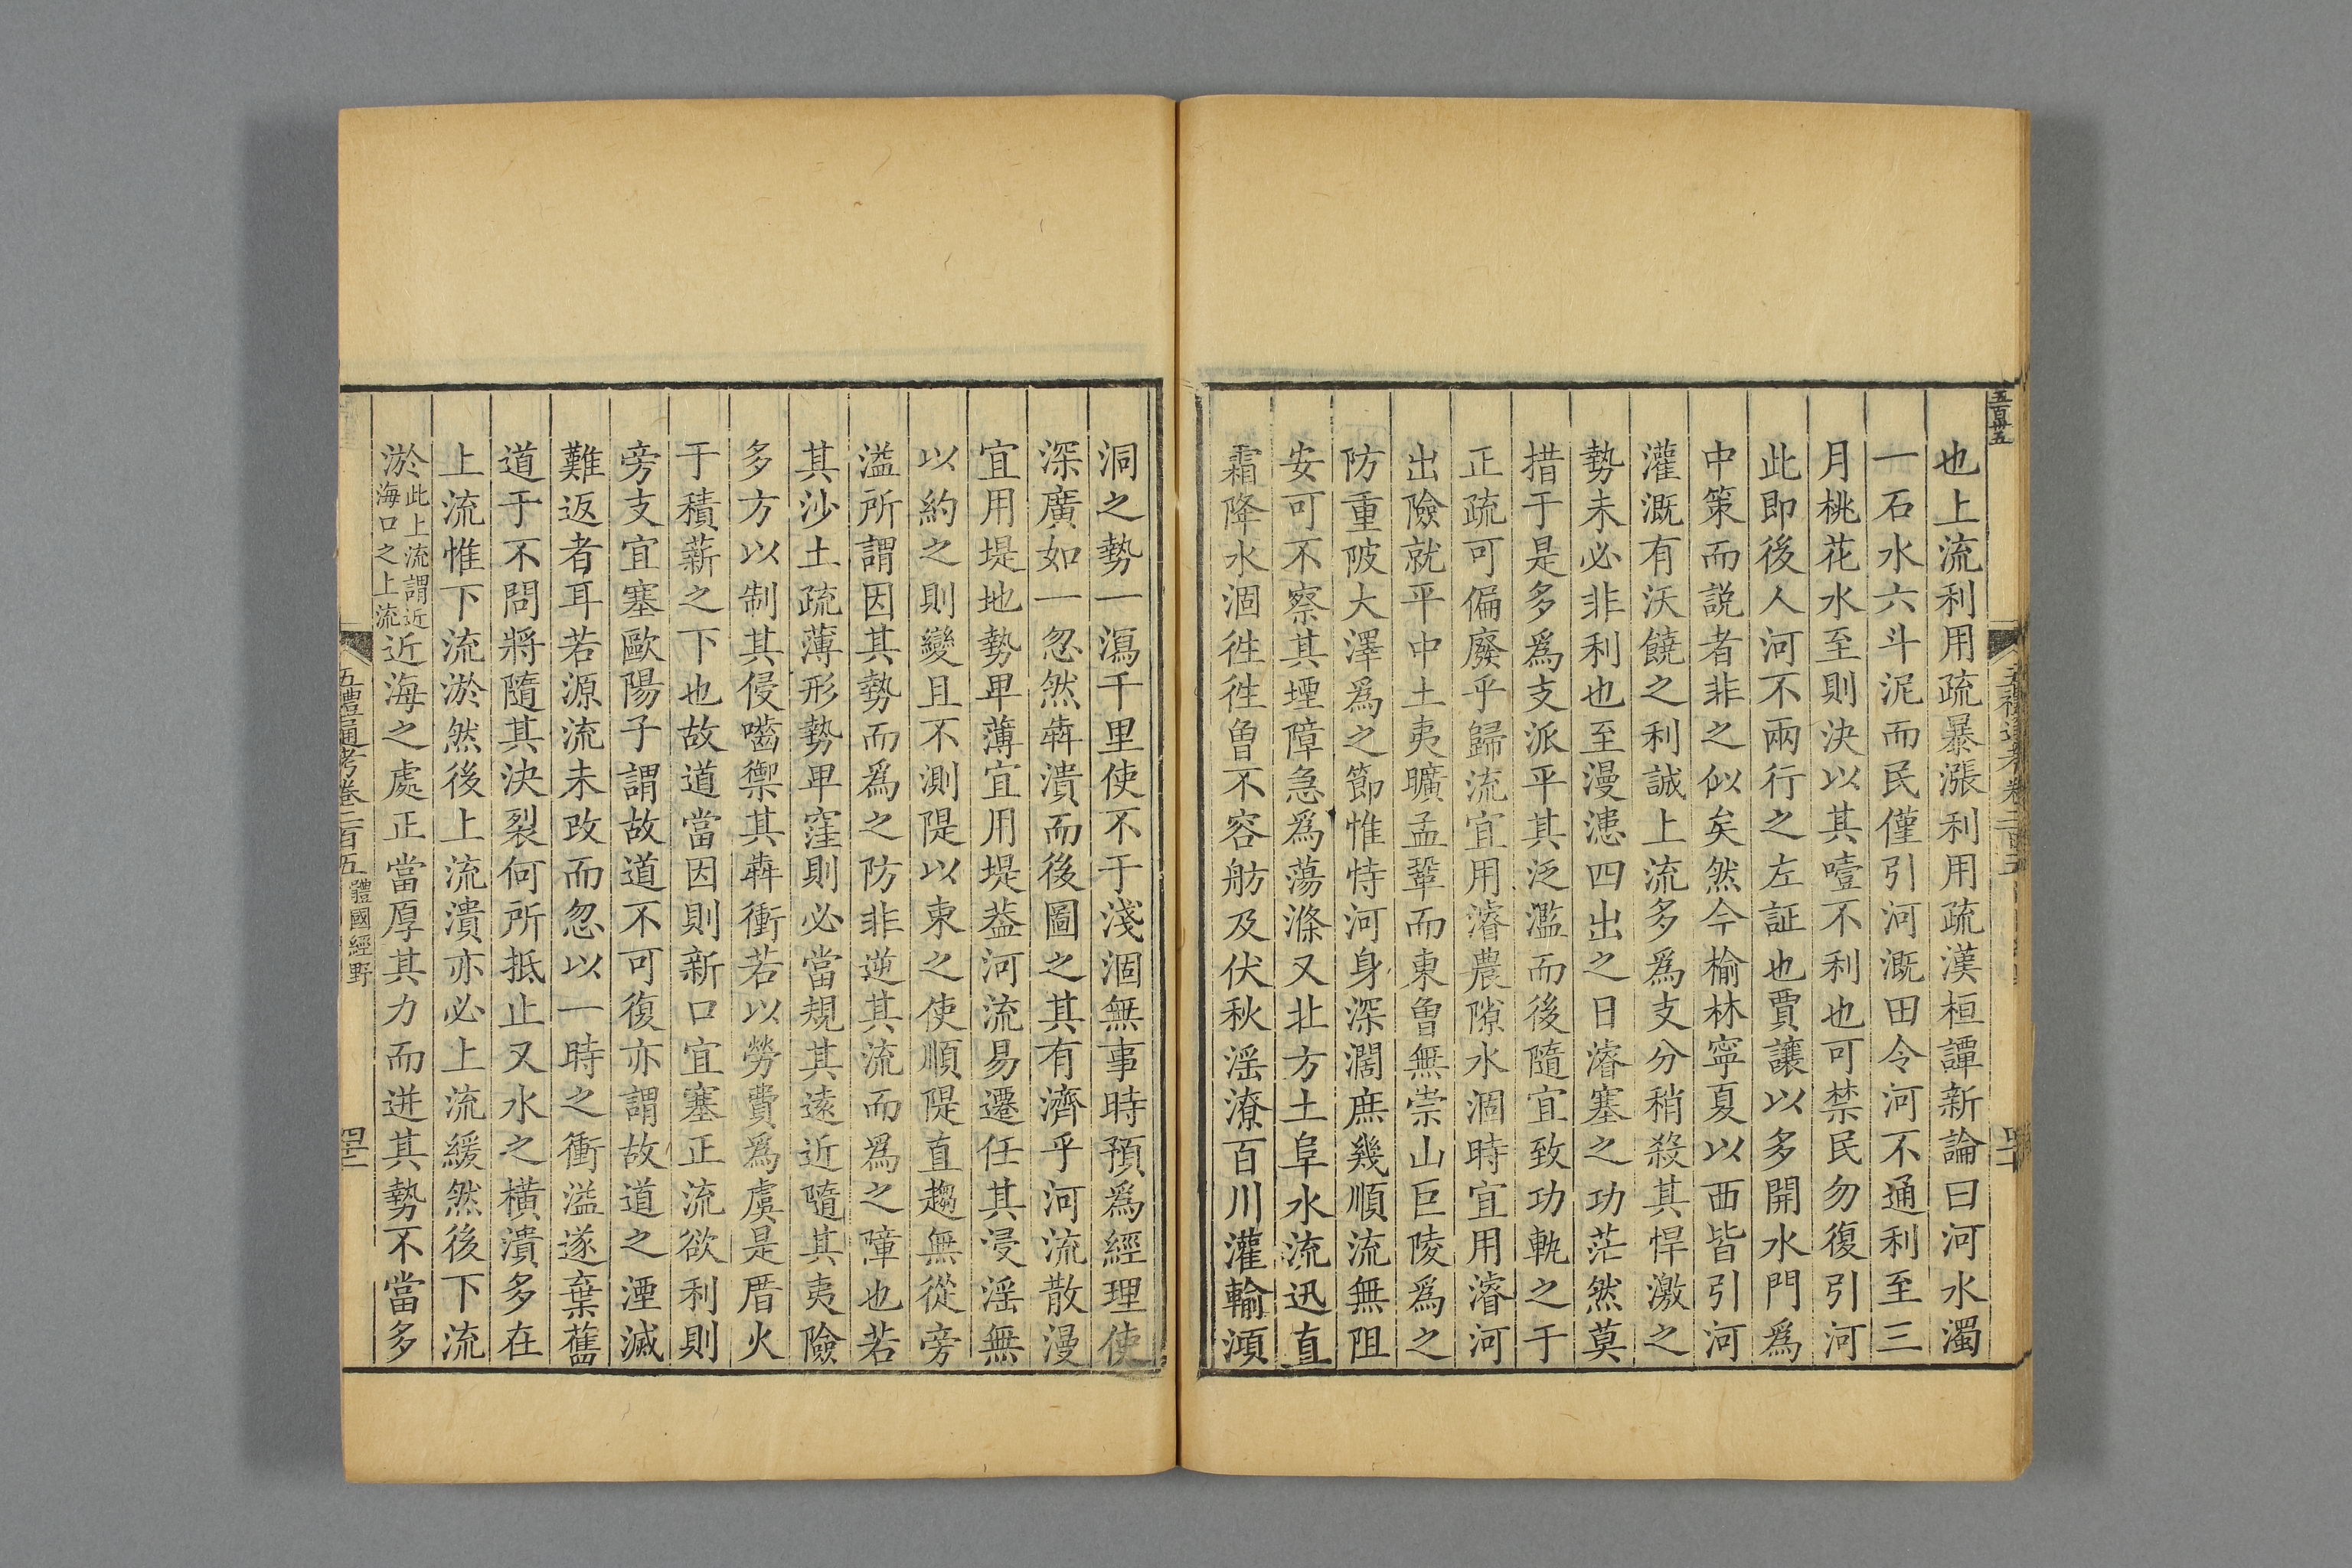 五百卅五
也上流利用疏暴漲利用疏漢桓譚新論曰河水濁
一石水六斗泥而民僅引河溉田令河不通利至三
月桃花水至則決以其噎不利也可禁民勿復引河
此即後人河不兩行之左証也賈讓以多開水門爲
中策而説者非之似矣然今榆林寧夏以西皆引河
灌溉有沃饒之利誠上流多爲支分稍殺其悍激之
勢未必非利也至漫漶四出之日濬塞之功茫然莫
措于是多爲支派平其泛濫而後隨宜致功軌之于
正疏可偏廢乎歸流宜用濬農隙水涸時宜用濬河
出險就平中土夷曠孟鞏而東魯無崇山巨陵爲之
防重陂大澤爲之節惟恃河身深濶庶幾順流無阻
安可不察其堙障急爲蕩滌又北方土阜水流迅直
霜降水涸徃徃曾不容舫及伏秋淫潦百川灌輸澒
洞之勢一瀉千里使不于淺涸無事時預爲經理使
深廣如一忽然犇潰而後圖之其有濟乎河流散漫
宜用堤地勢卑薄宜用堤葢河流易遷任其浸淫無
以約之則變且不測隄以束之使順隄直趨無從旁
溢所謂因其勢而爲之防非逆其流而爲之障也若
其沙土疏薄形勢卑窪則必當規其遠近隨其夷險
多方以制其侵嚙禦其犇衝若以勞費爲虞是厝火
于積薪之下也故道當因則新口宜塞正流欲利則
旁支宜塞歐陽子謂故道不可復亦謂故道之湮滅
難返者耳若源流未改而忽以一時之衝溢遂棄舊
道于不問將隨其決裂何所抵止又水之橫潰多在
上流惟下流淤然後上流潰亦必上流緩然後下流
淤此上流謂近海口之上流近海之處正當厚其力而迸其勢不當多
五禮通考卷二百五 體國經野 四十二